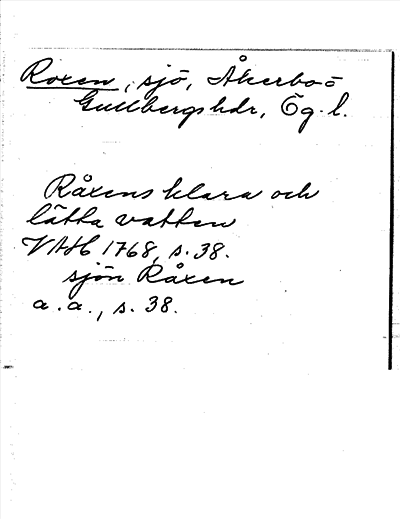 Roxen, sjö, Åkerbo o
Gullbergs hdr, Ög. l.
Råxens klara och
lätta vatten
VAH 1768, s. 38.
sjön Råxen
a. a., s. 38.